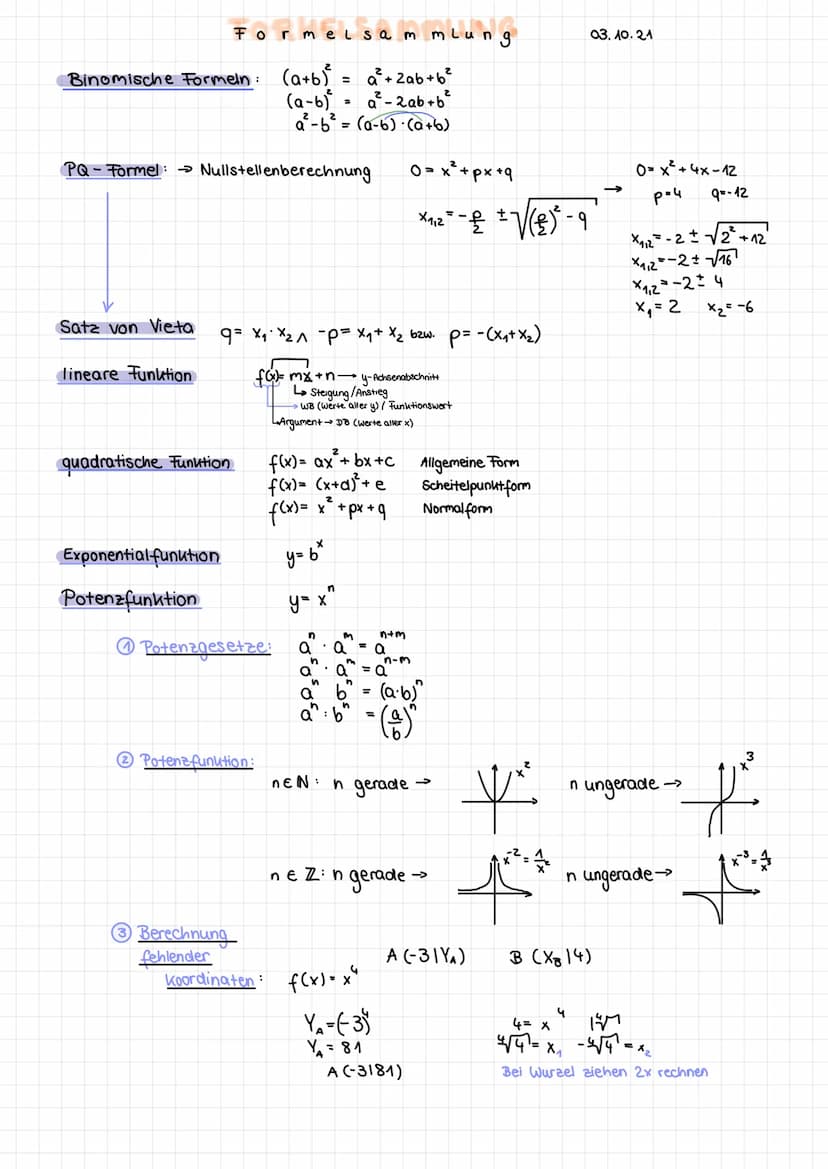 Formelsammlung 03.10.21
Binomische Formeln: (a+b)² = a²+2ab+b²
(a-b)² = a²-2ab+b²
a²-b² = (a-b)·(a+b)
PQ-Formel: → Nullstellenberechnung 0 = x²+px+q → 0 = x²+4x-12
p=4 q=-12
x₁,₂ = -p/2 ± √((p/2)² - q)
x₁,₂ = -2 ± √(2²+12)
x₁,₂ = -2 ± √16
x₁,₂ = -2 ± 4
x₁ = 2 x₂ = -6
Satz von Vieta q = x₁·x₂ ∧ -p = x₁+x₂ bzw. p = -(x₁+x₂)
lineare Funktion f(x) = mx+n → y-Achsenabschnitt
↳ Steigung/Anstieg
→ WB (Werte aller y) / Funktionswert
Argument → DB (Werte aller x)
quadratische Funktion f(x) = ax²+bx+c Allgemeine Form
f(x) = (x+d)²+e Scheitelpunktform
f(x) = x²+px+q Normalform
Exponentialfunktion y = bˣ
Potenzfunktion y = xⁿ
① Potenzgesetze: aⁿ · aᵐ = aⁿ⁺ᵐ
aⁿ · aᵐ = aⁿ⁻ᵐ
aⁿ bⁿ = (a·b)ⁿ
aⁿ : bⁿ = (a/b)ⁿ
② Potenzfunktion:
n∈ℕ: n gerade → x² n ungerade → x³
n∈ℤ: n gerade → x⁻² = 1/x² n ungerade → x⁻³ = 1/x³
③ Berechnung
fehlender A(-3|Yₐ) B(X_B|4)
Koordinaten: f(x) = x⁴
Yₐ = (-3)⁴ 4 = x⁴ |∜
Yₐ = 81 ∜4 = x₁ -∜4 = x₂
A(-3|81) Bei Wurzel ziehen 2x rechnen